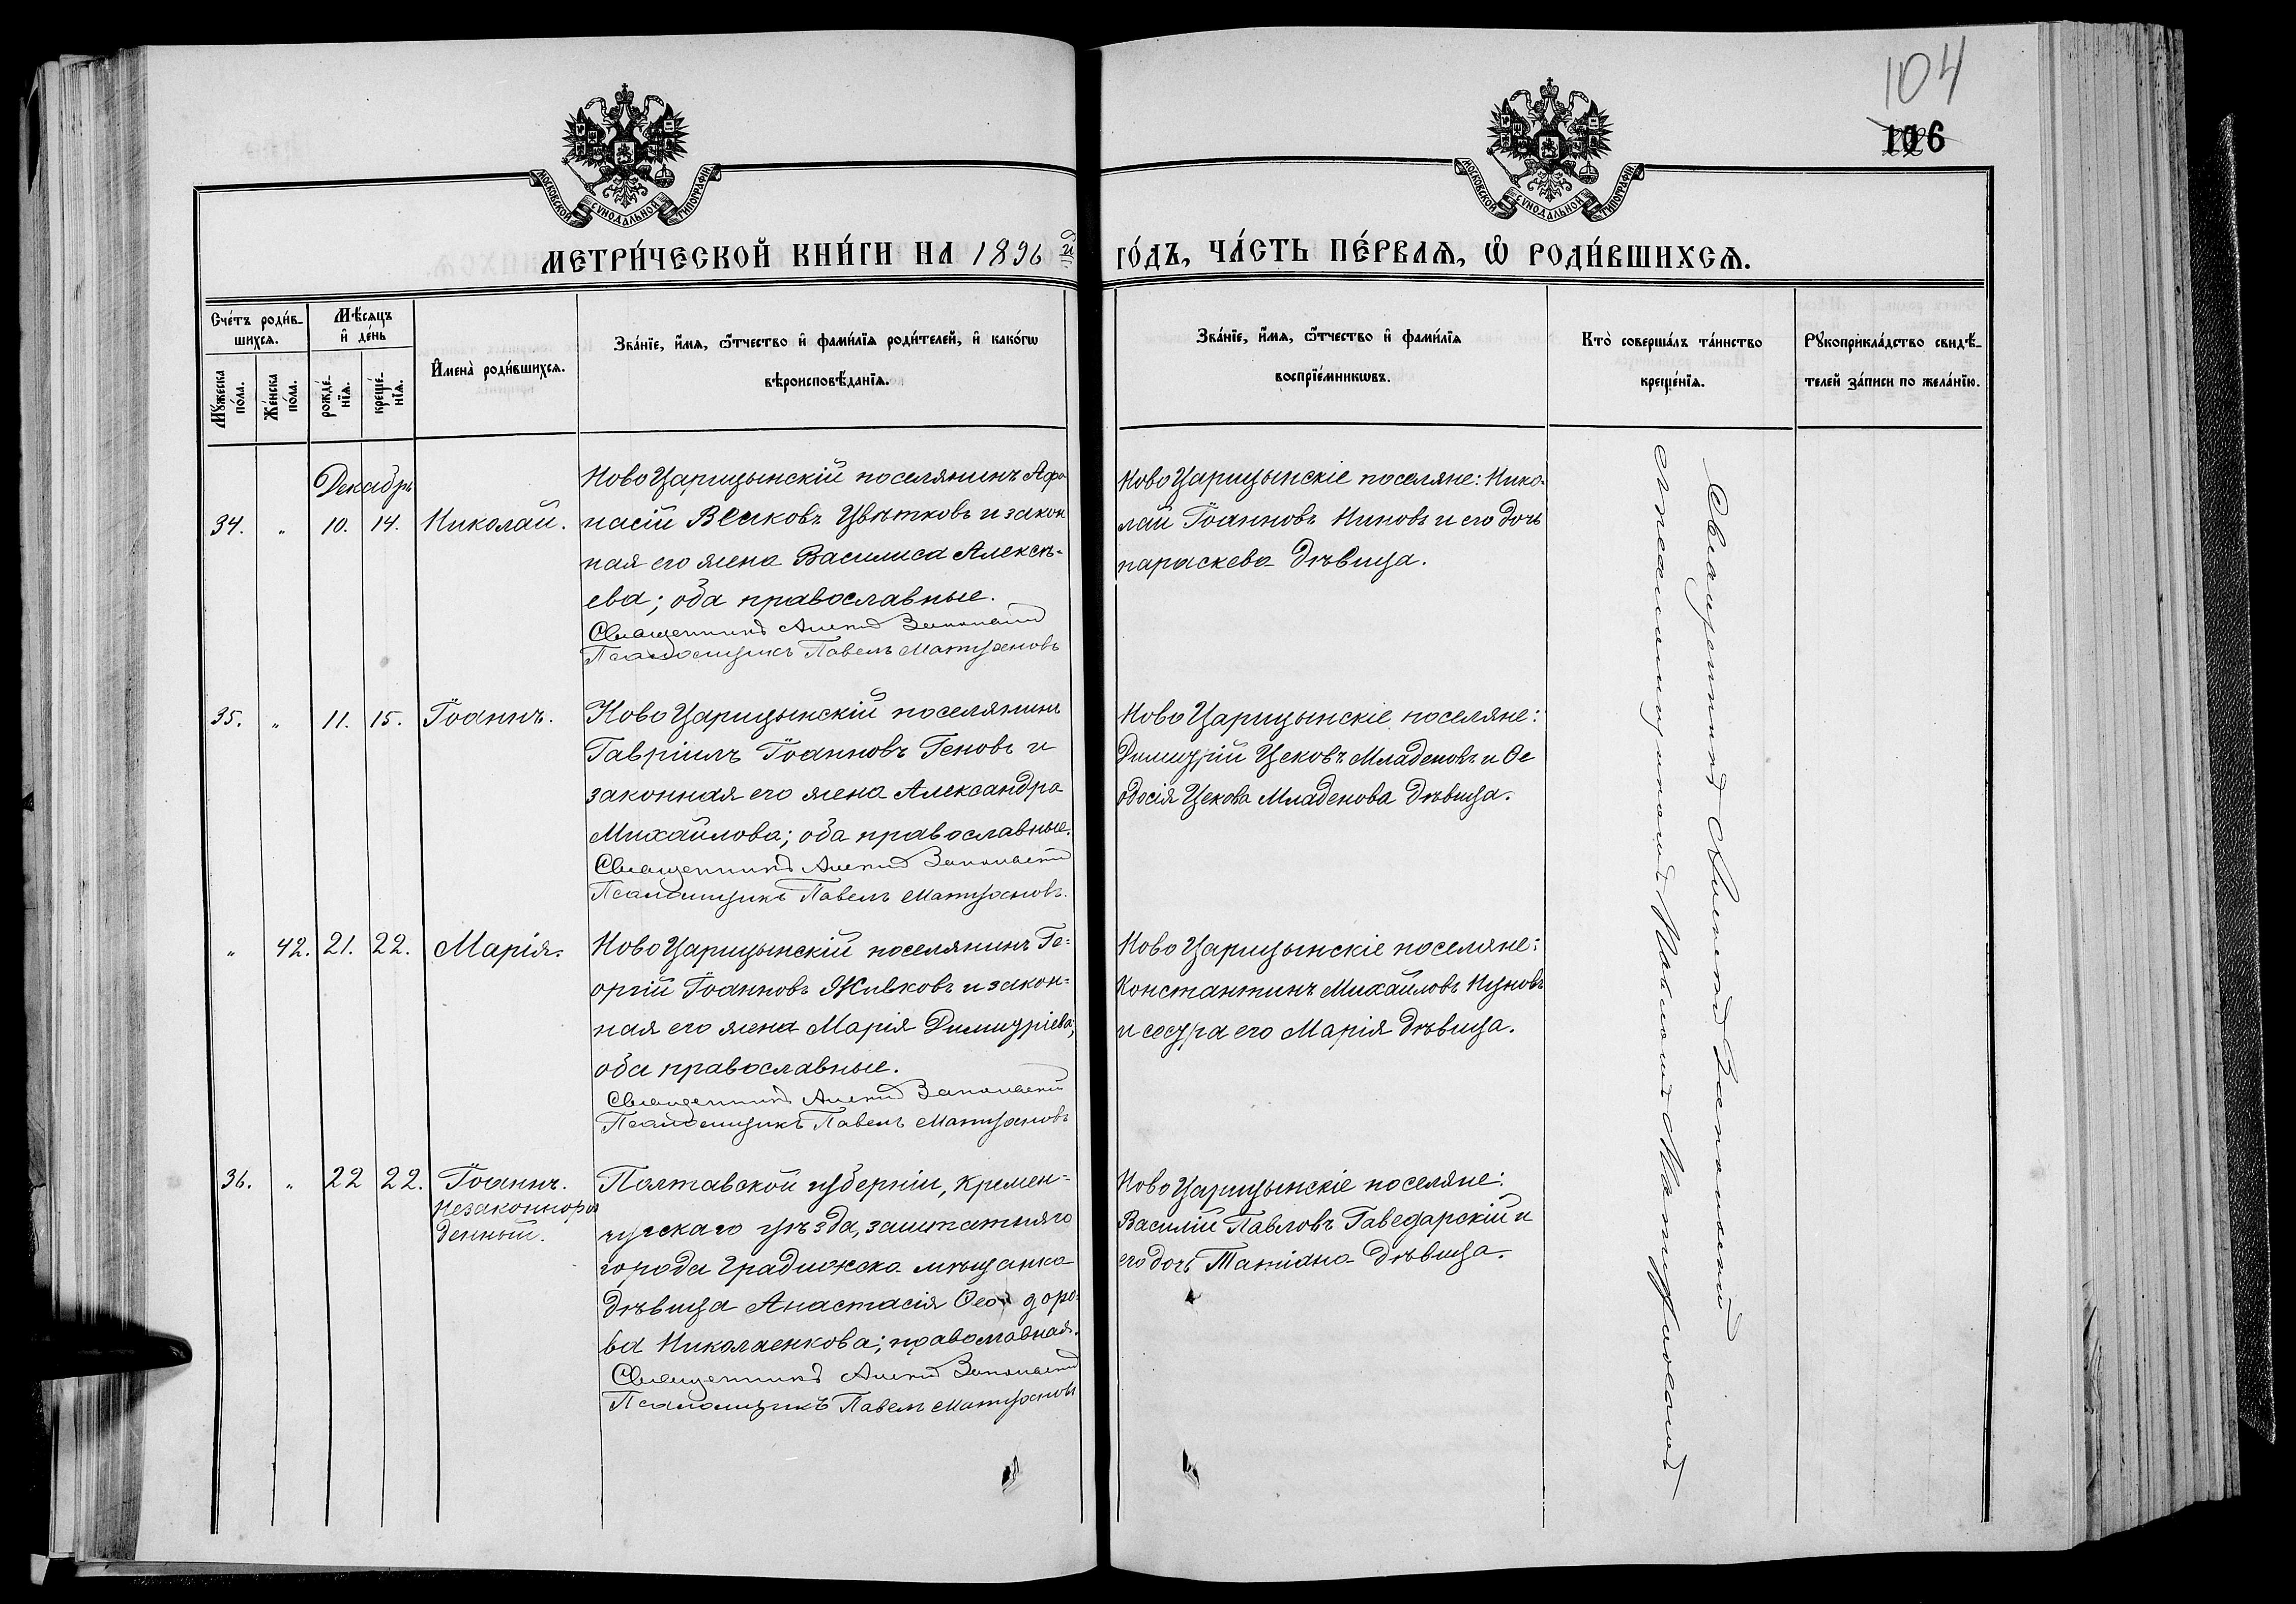 104
106
МОСКОВСКОЙ СѴНОДАЛЬНОЙ ТИПОГРАФІИ
МОСКОВСКОЙ СѴНОДАЛЬНОЙ ТИПОГРАФІИ
МЕТРИ́ЧЕСКОЙ КНИ́ГИ НА 1896 й
ГО́ДЪ, ЧА́СТЬ ПЕ́РВАѦ, Ѡ҆ РОДИ́ВШИХСѦ.
Сче́тъ роди́в-
шихсѧ.
Мѹ́жеска по́ла.
Же́нска по́ла.
Мѣ́сѧцъ и҆ де́нь
рожде́-нїѧ.
креще́-нїѧ.
И҆мена̀ роди́вшихсѧ.
Зва́нїе, и҆́мѧ, ѻ҆́тчество и҆ фами́лїѧ роди́телей, и҆ како́гѡ
вѣроисповѣ́данїѧ.
Зва́нїе, и҆́мѧ, ѻ҆́тчество и҆ фами́лїѧ
воспрїе́мникѡвъ.
Кто̀ соверша́лъ та́инство
креще́нїѧ.
Рѹкоприкла́дство свидѣ́-
телей за́писи по жела́нїю.
Декабрь
34. „ 10. 14. Николай.
НовоЦарицынскій поселянинъ Афа
насій Велковъ Цвѣтковъ и закон
ная его жена Василиса Алексѣ-
ева; оба православные.
Священникъ
Псаломщикъ Павелъ
НовоЦарицынскіе поселяне: Нико-
лай Іоанновъ Ниновъ и его дочь
параскева дѣвица.
35. „ 11. 15. Іоаннъ.
НовоЦарицынскій поселянинъ
Гавріилъ Іоанновъ Геновъ и
законная его жена Александра
Михайлова; оба православные.
Священникъ
Псаломщикъ Павелъ
НовоЦарицынскіе поселяне:
Димитрій Цековъ Младеновъ и Ѳе
одосія Цекова Младенова дѣвица.
„ 42. 21. 22. Марія.
НовоЦарицынскій поселянинъ Ге-
оргій Іоанновъ Живковъ и закон-
ная его жена Марія Димитріева;
оба православные.
Священникъ
Псаломщикъ Павелъ
НовоЦарицынскіе поселяне:
Константинъ Михайловъ Нуновъ
и сестра его Марія дѣвица.
36. „ 22 22. Іоаннъ.
Незаконнорож
денный.
Полтавской губерніи, Кремен-
чугскаго уѣзда, заштатняго
города Градижска мѣщанка
дѣвица Анастасія Ѳеодоро-
ва Николаенкова; православная.
Священникъ
Псаломщикъ Павелъ
НовоЦарицынскіе поселяне:
Василій Павловъ Гаведарскій и
его дочь Татіана дѣвица.
Священникъ
съ псаломщикомъ Павломъ